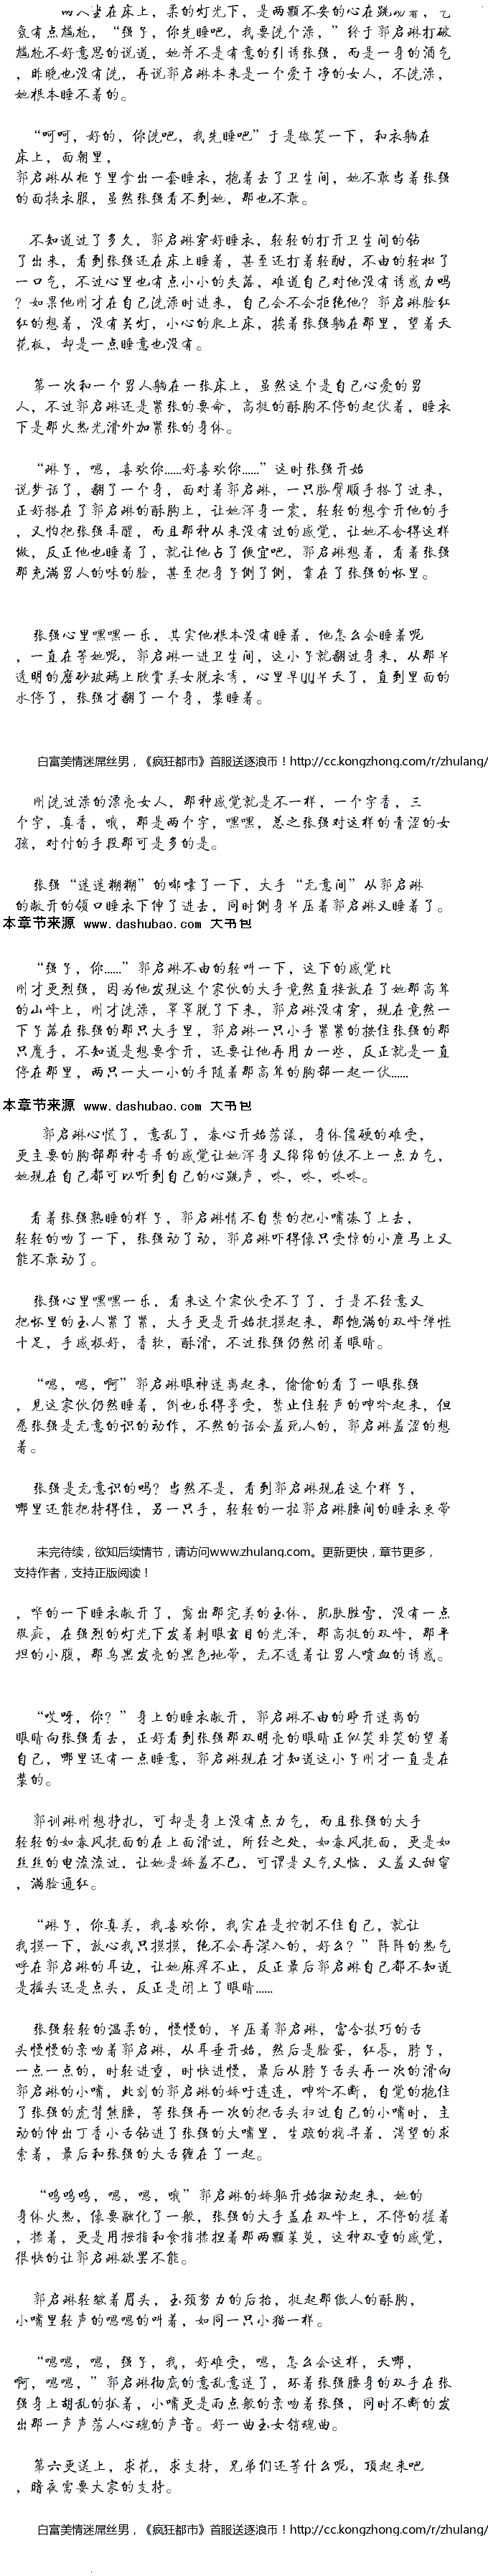 两人坐在床上，柔的灯光下，是两颗不安的心在跳动着，气
氛有点尴尬，“强子，你先睡吧，我要洗个澡，”终于郭启琳打破
尴尬不好意思的说道，她并不是有意的引诱张强，而是一身的酒气
，昨晚也没有洗，再说郭启琳本来是一个爱干净的女人，不洗澡，
她根本睡不着的。
“呵呵，好的，你洗吧，我先睡吧”于是微笑一下，和衣躺在
床上，面朝里，
郭启琳从柜子里拿出一套睡衣，抱着去了卫生间，她不敢当着张强
的面换衣服，虽然张强看不到她，那也不敢。
不知道过了多久，郭启琳穿好睡衣，轻轻的打开卫生间的钻
了出来，看到张强还在床上睡着，甚至还打着轻酣，不由的轻松了
一口气，不过心里也有点小小的失落，难道自己对他没有诱惑力吗
？如果他刚才在自己洗澡时进来，自己会不会拒绝他？郭启琳脸红
红的想着，没有关灯，小心的爬上床，挨着张强躺在那里，望着天
花板，却是一点睡意也没有。
第一次和一个男人躺在一张床上，虽然这个是自己心爱的男
人，不过郭启琳还是紧张的要命，高挺的酥胸不停的起伏着，睡衣
下是那火热光滑外加紧张的身体。
“琳子，嗯，喜欢你……好喜欢你……”这时张强开始
说梦话了，翻了一个身，面对着郭启琳，一只胳臂顺手搭了过来，
正好搭在了郭启琳的酥胸上，让她浑身一震，轻轻的想拿开他的手
，又怕把张强弄醒，而且那种从来没有过的感觉，让她不舍得这样
做，反正他也睡着了，就让他占了便宜吧，郭启琳想着，看着张强
那充满男人的味的脸，甚至把身子侧了侧，靠在了张强的怀里。
张强心里嘿嘿一乐，其实他根本没有睡着，他怎么会睡着呢
，一直在等她呢，郭启琳一进卫生间，这小子就翻过身来，从那半
透明的磨砂玻璃上欣赏美女脱衣秀，心里早YY半天了，直到里面的
水停了，张强才翻了一个身，装睡着。
白富美情迷屌丝男，《疯狂都市》首服送逐浪币！http://cc.kongzhong.com/r/zhulang/
刚洗过澡的漂亮女人，那种感觉就是不一样，一个字香，三
个字，真香，哦，那是两个字，嘿嘿，总之张强对这样的青涩的女
孩，对付的手段那可是多的是。
张强“迷迷糊糊”的嘟嚷了一下，大手“无意间”从郭启琳
的敞开的领口睡衣下伸了进去，同时侧身半压着郭启琳又睡着了。
本章节来源 www.dashubao.com 大书包
“强子，你……”郭启琳不由的轻叫一下，这下的感觉比
刚才更烈强，因为他发现这个家伙的大手竟然直接放在了她那高耸
的山峰上，刚才洗澡，罩罩脱了下来，郭启琳没有穿，现在竟然一
下子落在张强的那只大手里，郭启琳一只小手紧紧的按住张强的那
只魔手，不知道是想要拿开，还要让他再用力一些，反正就是一直
停在那里，两只一大一小的手随着那高耸的胸部一起一伏……
本章节来源 www.dashubao.com 大书包
郭启琳心慌了，意乱了，春心开始荡漾，身体僵硬的难受，
更主要的胸部那种奇异的感觉让她浑身又绵绵的使不上一点力气，
她现在自己都可以听到自己的心跳声，咚，咚，咚咚。
看着张强熟睡的样子，郭启琳情不自禁的把小嘴凑了上去，
轻轻的吻了一下，张强动了动，郭启琳吓得像只受惊的小鹿马上又
能不敢动了。
张强心里嘿嘿一乐，看来这个家伙受不了了，于是不经意又
把怀里的玉人紧了紧，大手更是开始抚摸起来，那饱满的双峰弹性
十足，手感极好，香软，酥滑，不过张强仍然闭着眼睛。
“嗯，嗯，啊”郭启琳眼神迷离起来，偷偷的看了一眼张强
，见这家伙仍然睡着，倒也乐得享受，禁止住轻声的呻吟起来，但
愿张强是无意的识的动作，不然的话会羞死人的，郭启琳羞涩的想
着。
张强是无意识的吗？当然不是，看到郭启琳现在这个样子，
哪里还能把持得住，另一只手，轻轻的一拉郭启琳腰间的睡衣束带
未完待续，欲知后续情节，请访问www.zhulang.com。更新更快，章节更多，
支持作者，支持正版阅读！
，哗的一下睡衣敞开了，露出那完美的玉体，肌肤胜雪，没有一点
瑕疵，在强烈的灯光下发着刺眼玄目的光泽，那高挺的双峰，那平
坦的小腹，那乌黑发亮的黑色地带，无不透着让男人喷血的诱惑。
“哎呀，你？”身上的睡衣敞开，郭启琳不由的睁开迷离的
眼睛向张强看去，正好看到张强那双明亮的眼睛正似笑非笑的望着
自己，哪里还有一点睡意，郭启琳现在才知道这小子刚才一直是在
装的。
郭训琳刚想挣扎，可却是身上没有点力气，而且张强的大手
轻轻的如春风抚面的在上面滑过，所经之处，如春风抚面，更是如
丝丝的电流流过，让她是娇羞不已，可谓是又气又恼，又羞又甜蜜
，满脸通红。
“琳子，你真美，我喜欢你，我实在是控制不住自己，就让
我摸一下，放心我只摸摸，绝不会再深入的，好么？”阵阵的热气
呼在郭启琳的耳边，让她麻痒不止，反正最后郭启琳自己都不知道
是摇头还是点头，反正是闭上了眼睛……
张强轻轻的温柔的，慢慢的，半压着郭启琳，富含技巧的舌
头慢慢的亲吻着郭启琳，从耳垂开始，然后是脸蛋，红唇，脖子，
一点一点的，时轻进重，时快进慢，最后从脖子舌头再一次的滑向
郭启琳的小嘴，此刻的郭启琳的娇吁连连，呻吟不断，自觉的抱住
了张强的虎背熊腰，等张强再一次的把舌头扫过自己的小嘴时，主
动的伸出丁香小舌钻进了张强的大嘴里，生疏的找寻着，渴望的求
索着，最后和张强的大舌缠在了一起。
“呜呜呜，嗯，嗯，哦”郭启琳的娇躯开始扭动起来，她的
身体火热，像要融化了一般，张强的大手盖在双峰上，不停的搓着
，揉着，更是用拇指和食指揉捏着那两颗茱萸，这种双重的感觉，
很快的让郭启琳欲罢不能。
郭启琳轻皱着眉头，玉颈努力的后抬，挺起那傲人的酥胸，
小嘴里轻声的嗯嗯的叫着，如同一只小猫一样。
“嗯嗯，嗯，强子，我，好难受，嗯，怎么会这样，天哪，
啊，嗯嗯，”郭启琳彻底的意乱意迷了，环着张强腰身的双手在张
强身上胡乱的抓着，小嘴更是雨点般的亲吻着张强，同时不断的发
出那一声声荡人心魂的声音。好一曲玉女销魂曲。
第六更送上，求花，求支持，兄弟们还等什么呢，顶起来吧
，暗夜需要大家的支持。
白富美情迷屌丝男，《疯狂都市》首服送逐浪币！http://cc.kongzhong.com/r/zhulang/